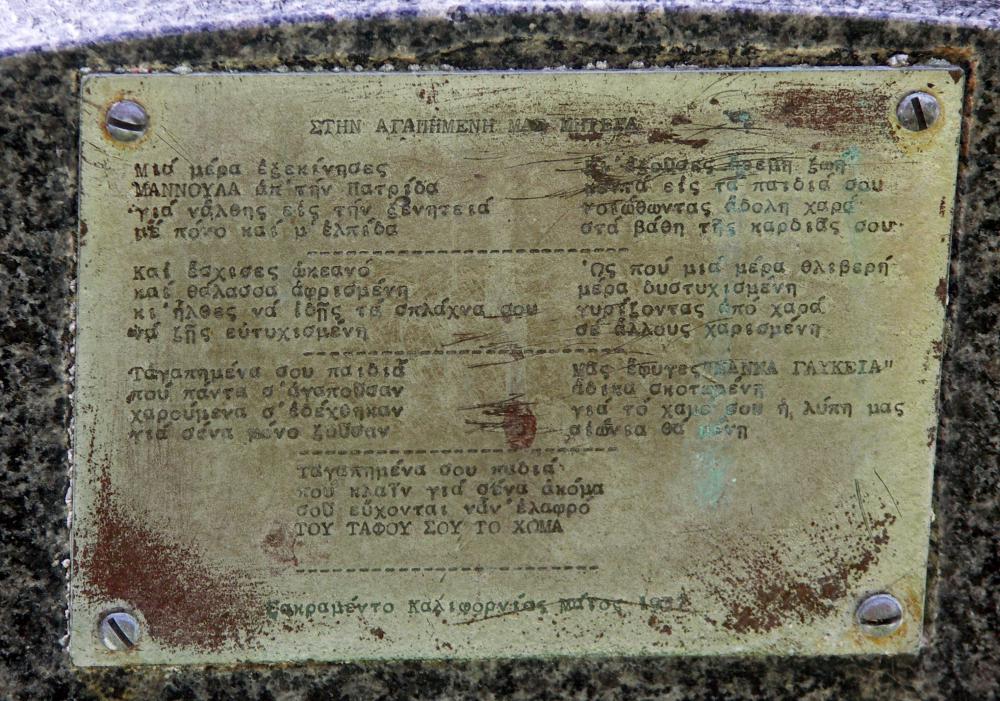 ΣΤΗΝ ΑΓΑΠΗΜΕΝΗ ΜΑΣ ΜΗΤΕΡΑ
Μιά μέρα ἐξεκίνησες
ΜΑΝΝΟΥΛΑ ἀπ'τήν Πατρίδα
γιά νἄλθης εἰς τήν ξενητειά
μέ πόνο καί μ'ἐλπίδα
ἐζοῦσες ἤρεμη ζωή
κοντά εἰς τά παιδιά σου
νοιώθωντας ἄδολη χαρά
στά βάθη τῆς καρδιᾶς σου
Καί ἔσχισες ὠκεανό
καί θάλασσα ἀφρισμένη
κι'ἦλθες νά ἰδῆς τά σπλάχνα σου
νά ζῆς εὐτυχισμένη
Ὥς πού μιά μέρα θλιβερή
μέρα δυστυχισμένη
γυρίζοντας ἀπό χαρά
σέ ἄλλους χαρισμένη
Τἀγαπημένα σου παιδιά
πού πάντα σ'ἀγαποῦσαν
χαρούμενα σ'ἐδέχθηκαν
γιά σένα μόνο ζοῦσαν
μᾶς ἔφυγες "ΜΑΝΝΑ ΓΛΥΚΕΙΑ"
ἄδικα σκοτωμένη
γιά τό χαμό σου ἡ λύπη μας
αἰώνια θά μένη
Τἀγαπημένα σου παιδιά
πού κλαῖν γιά σένα ἀκόμα
σοῦ εὔχονται νἆν'ἐλαφρό
ΤΟΥ ΤΑΦΟΥ ΣΟΥ ΤΟ ΧΩΜΑ
Σακραμέντο Καλιφόρνιας Μάϊος